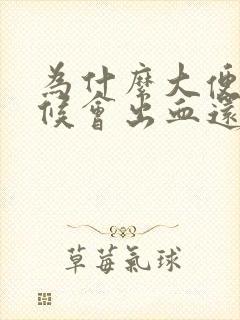 為什麼大便
候會出血還
草莓氣球